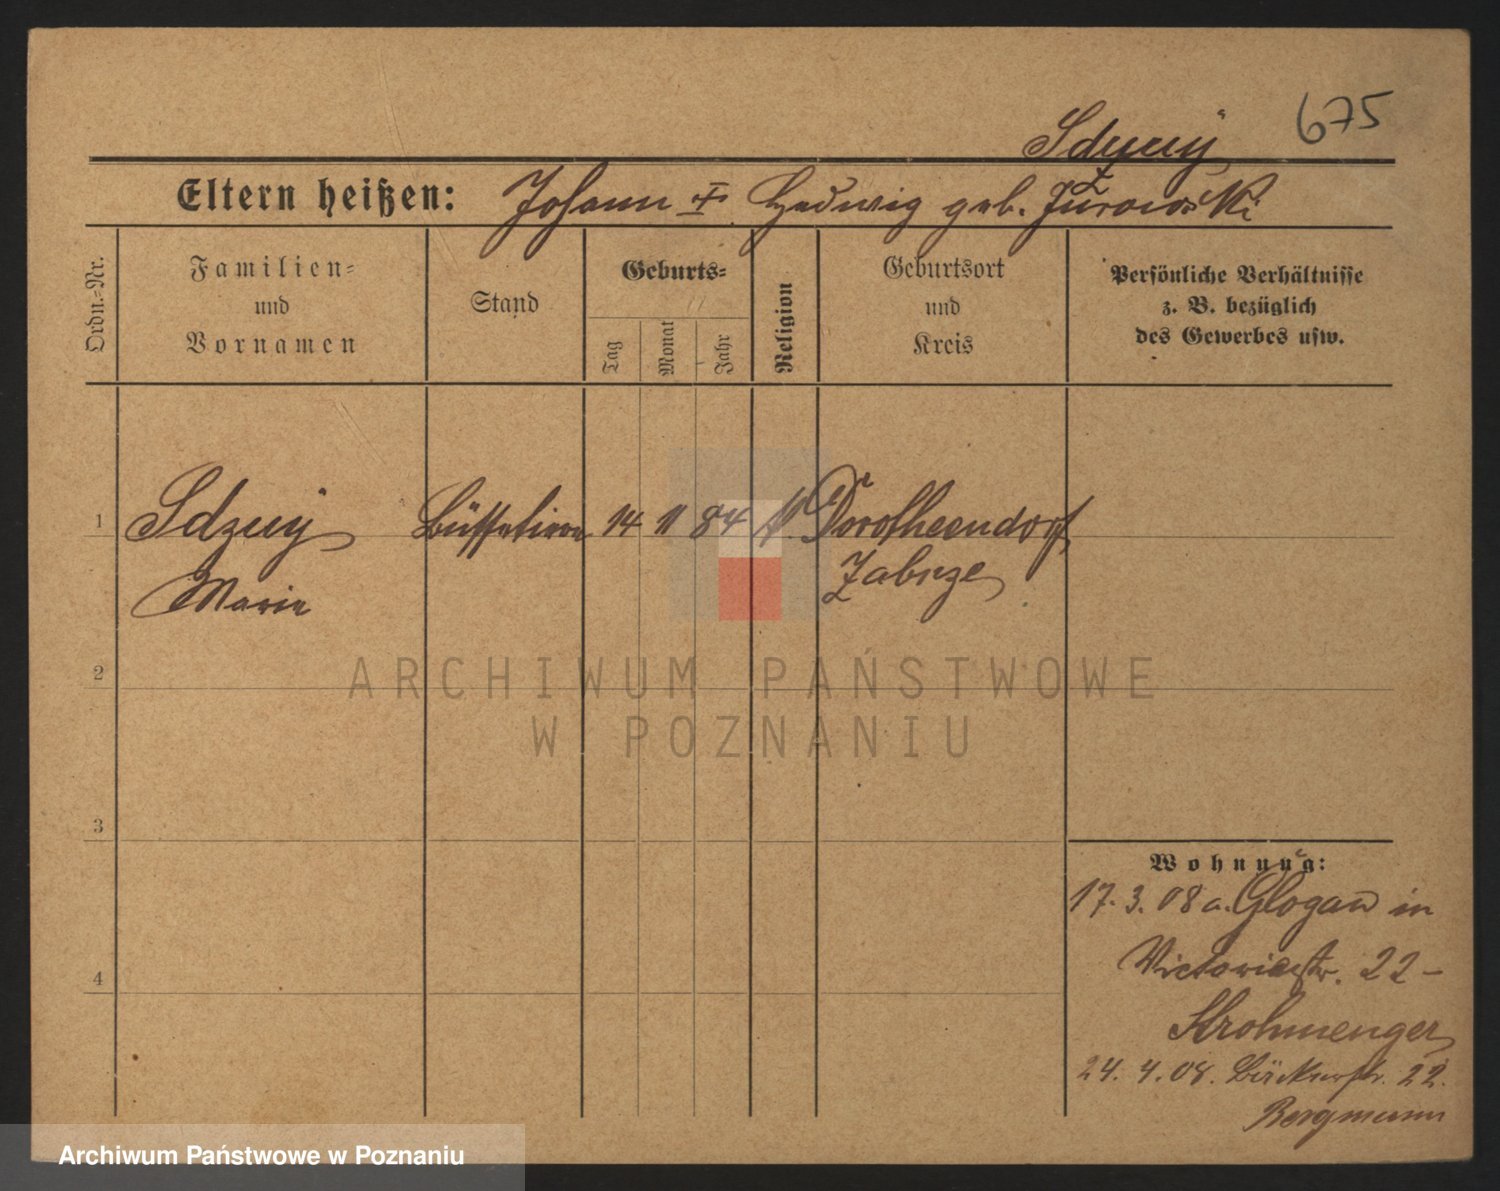 675
Sdzuÿ
Eltern heißen: Johann † Hedwig geb. Jurowski
Ordn.-Nr.
Familien-
und
Vornamen
Stand
Geburts-
Tag
Monat
Jahr
Religion
Geburtsort
und
Kreis
Persönliche Verhältnisse
z. B. bezüglich
des Gewerbes usw.
1 Sdzuÿ Büffetiere 14 11 84 k. Dorotheendorf
Marie Zabrze
2
ARCHIWUM PAŃSTWOWE
W POZNANIU
3
Wohnung:
17. 3. 08 a. Glogau in
Victoriastr. 22 -
Strohmenger
4
24. 4. 08. Bäckerstr. 22.
Bergmann
Archiwum Państwowe w Poznaniu